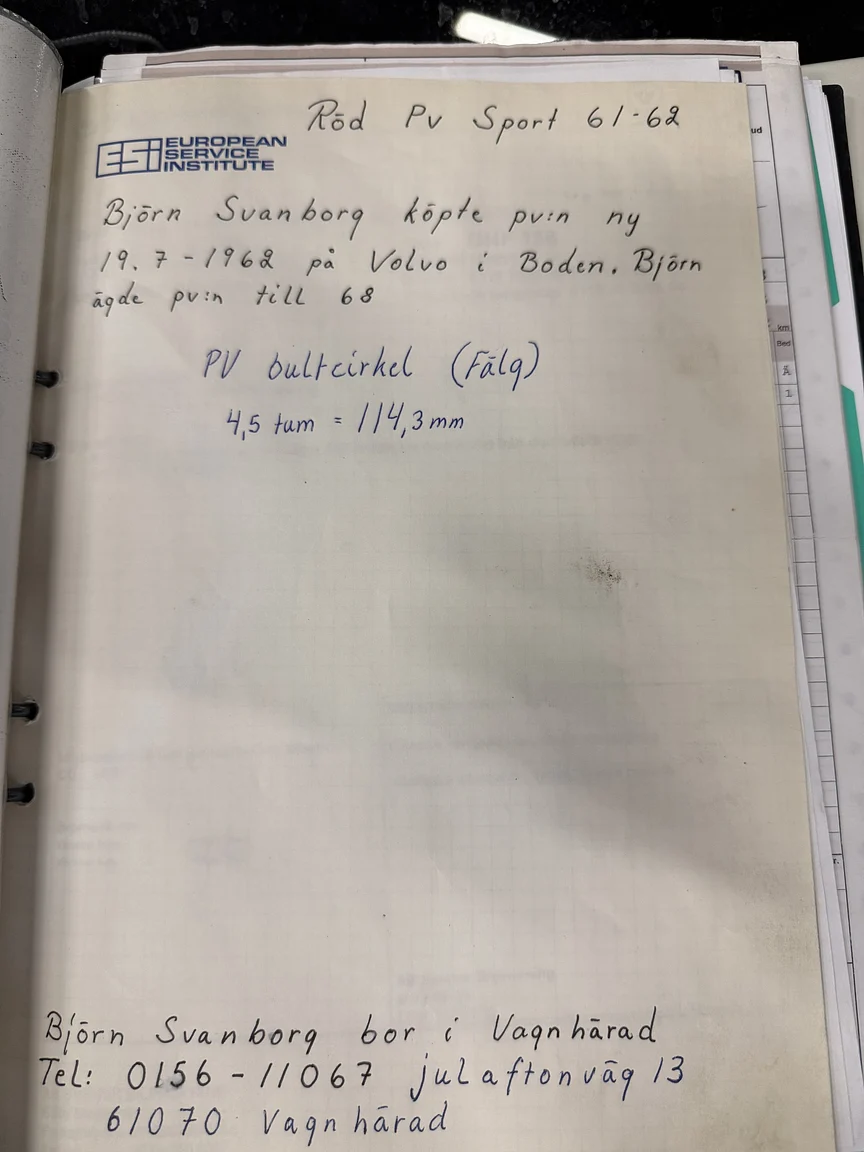 Röd Pv Sport 61-62
ESi EUROPEAN
SERVICE
INSTITUTE
Björn Svanborg köpte pv:n ny
19.7-1962 på Volvo i Boden. Björn
ägde pv:n till 68
PV bultcirkel (Fälg)
4,5 tum = 114,3 mm
Björn Svanborg bor i Vagnhärad
Tel: 0156-11067 julaftonväg 13
61070 Vagnhärad
ud
km
Bes
Ä
1